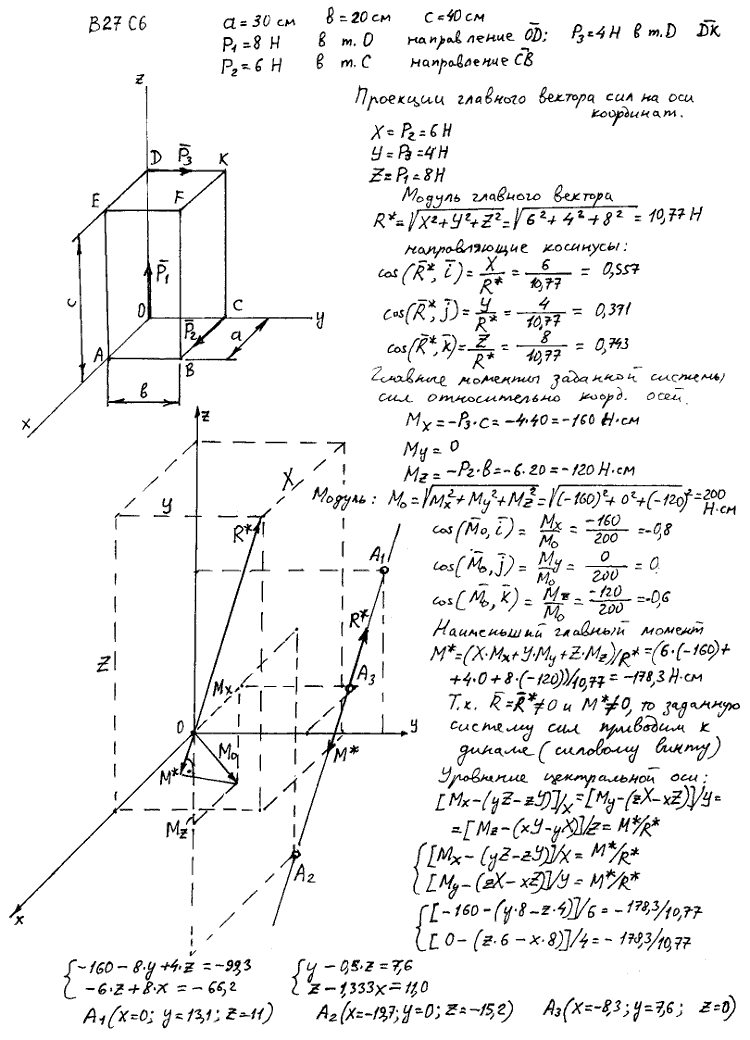 В27 С6
a = 30 см   в = 20 см   c = 40 см
P₁ = 8 Н   в т. О   направление O̅D̅;   P₃ = 4 Н в т. D   D̅K̅
P₂ = 6 Н   в т. С   направление C̅B̅
z
D
P̅₃
K
E
F
P̅₁
c
O
C
y
P̅₂
a
A
B
в
x
Проекции главного вектора сил на оси
координат.
X = P₂ = 6 Н
Y = P₃ = 4 Н
Z = P₁ = 8 Н
Модуль главного вектора
R* = √X² + Y² + Z² = √6² + 4² + 8² = 10,77 Н
направляющие косинусы:
cos(R̅*, i̅) = X/R* = 6/10,77 = 0,557
cos(R̅*, j̅) = Y/R* = 4/10,77 = 0,371
cos(R̅*, k̅) = Z/R* = 8/10,77 = 0,743
Главные моменты заданной системы
сил относительно коорд. осей.
Mx = -P₃·c = -4·40 = -160 Н·см
My = 0
Mz = -P₂·в = -6·20 = -120 Н·см
Модуль: M₀ = √Mx² + My² + Mz² = √(-160)² + 0² + (-120)² = 200
Н·см
cos(M̅₀, i̅) = Mx/M₀ = -160/200 = -0,8
cos(M̅₀, j̅) = My/M₀ = 0/200 = 0
cos(M̅₀, k̅) = Mz/M₀ = -120/200 = -0,6
Наименьший главный момент
M* = (X·Mx + Y·My + Z·Mz)/R* = (6·(-160) +
+ 4·0 + 8·(-120))/10,77 = -178,3 Н·см
Т.к. R̅ = R̅* ≠ 0 и M* ≠ 0, то заданную
систему сил приводим к
динаме (силовому винту)
Уравнение центральной оси:
[Mx - (yZ - zY)]/X = [My - (zX - xZ)]/Y =
= [Mz - (xY - yX)]/Z = M*/R*
{[Mx - (yZ - zY)]/X = M*/R*
[My - (zX - xZ)]/Y = M*/R*
{[-160 - (y·8 - z·4)]/6 = -178,3/10,77
[0 - (z·6 - x·8)]/4 = -178,3/10,77
z
X
Y
R*
A₁
R*
Z
Mx
A₃
O
y
M₀
M*
M*
Mz
A₂
x
{-160 - 8·y + 4·z = -99,3   {y - 0,5·z = 7,6
-6·z + 8·x = -66,2   z - 1,333x = 11,0
A₁(x=0; y=13,1; z=11)   A₂(x=-19,7; y=0; z=-15,2)   A₃(x=-8,3; y=7,6; z=0)